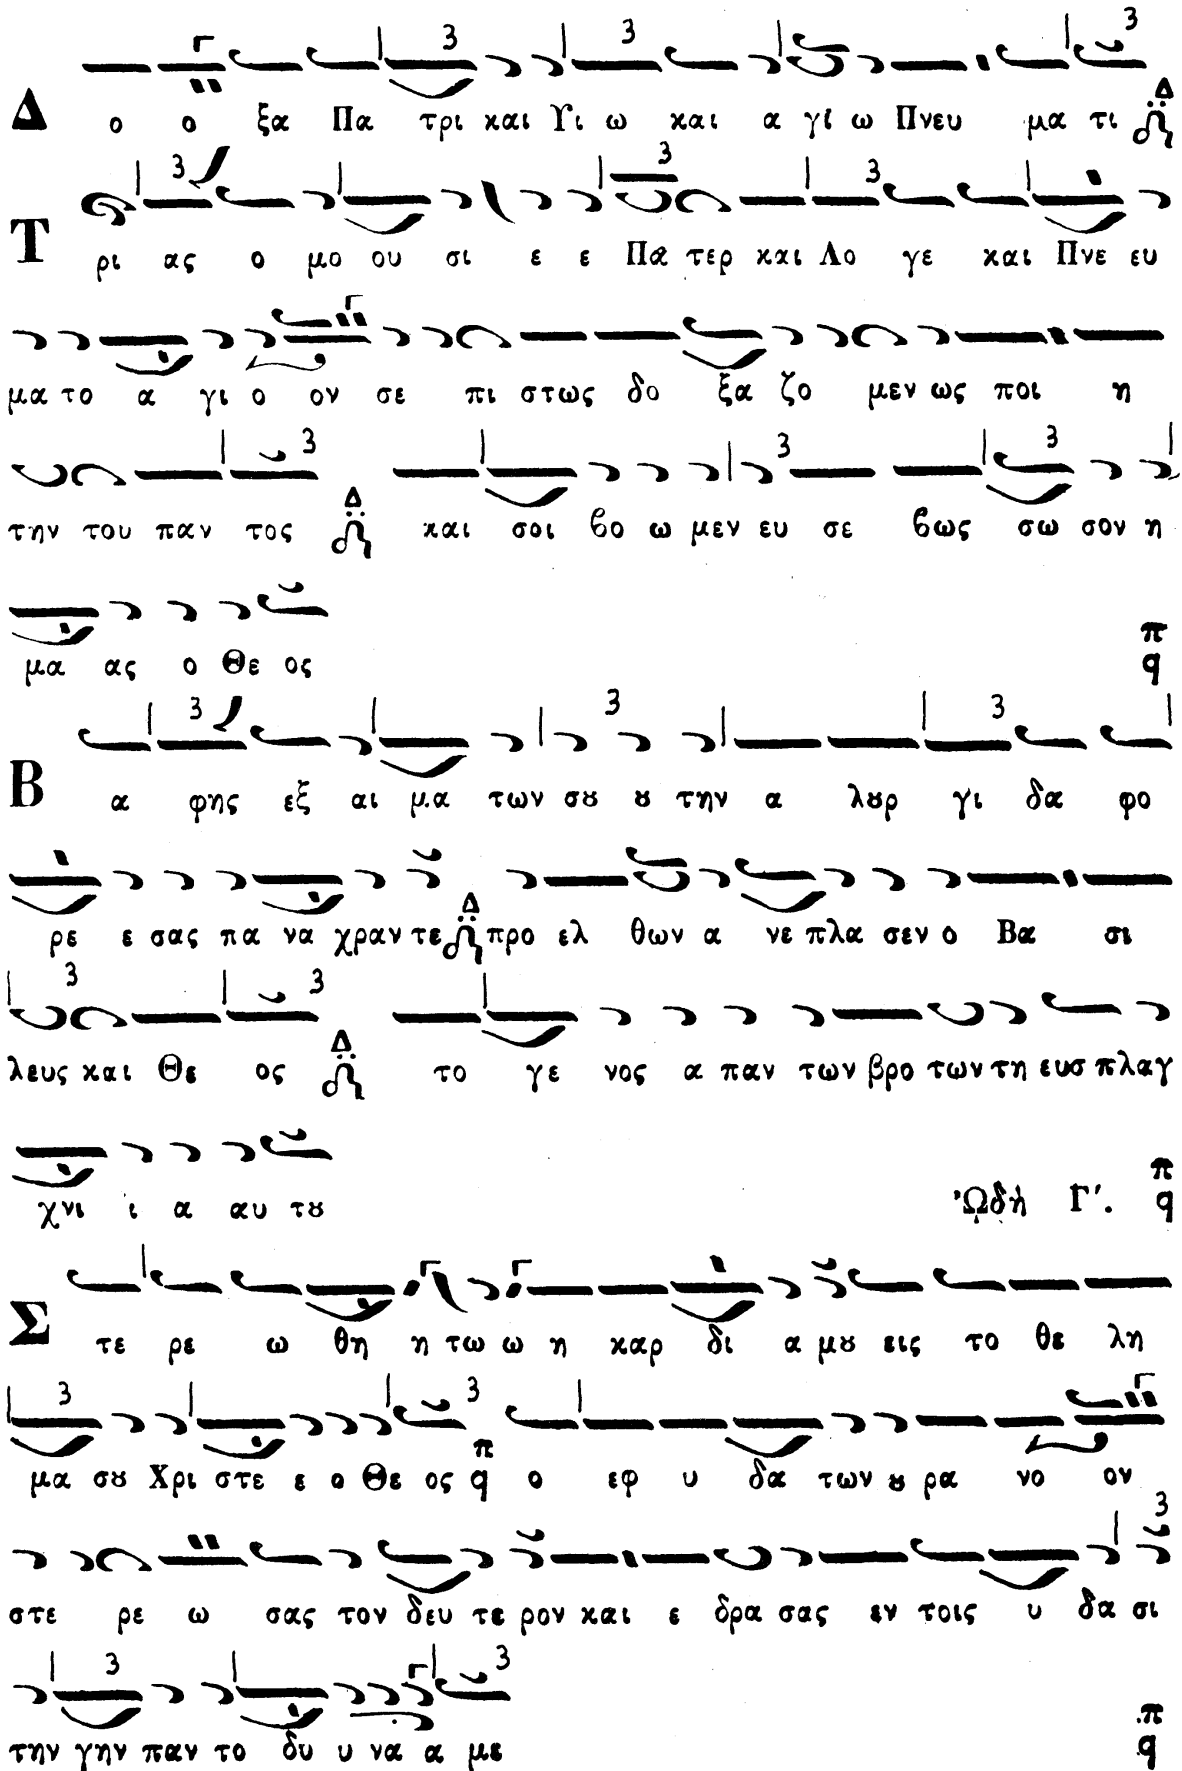 Δ ο ο ξα Πα τρι και Υι ω και α γι ω Πνευ μα τι Δ
Τ ρι ας ο μο ου σι ε ε Πα τερ και Λο γε και Πνε ευ
μα το α γι ο ον σε πι στως δο ξα ζο μεν ως ποι η
την του παν τος Δ και σοι βο ω μεν ευ σε βως σω σον η
μα ας ο Θε ος π q
Β α φης εξ αι μα των σȣ ȣ την α λȣρ γι δα φο
ρε ε σας πα να χραν τε Δ προ ελ θων α νε πλα σεν ο Βα σι
λευς και Θε ος Δ το γε νος α παν των βρο των τη ευσ πλαγ
χνι ι α αυ τȣ Ὠδὴ Γʹ. π q
Σ τε ρε ω θη η τω ω η καρ δι α μȣ εις το θε λη
μα σȣ Χρι στε ε ο Θε ος π q ο εφ υ δα των ȣ ρα νο ον
στε ρε ω σας τον δευ τε ρον και ε δρα σας εν τοις υ δα σι
την γην παν το δυ υ να α με π q